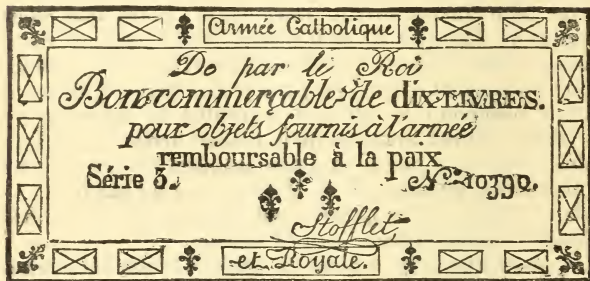 Armée Catholique
De par le Roi
Bon commerçable de DIX LIVRES.
pour objets fournis à l'armée
remboursable à la paix
Série 3. N.º 10390.
Stofflet
et Royale.